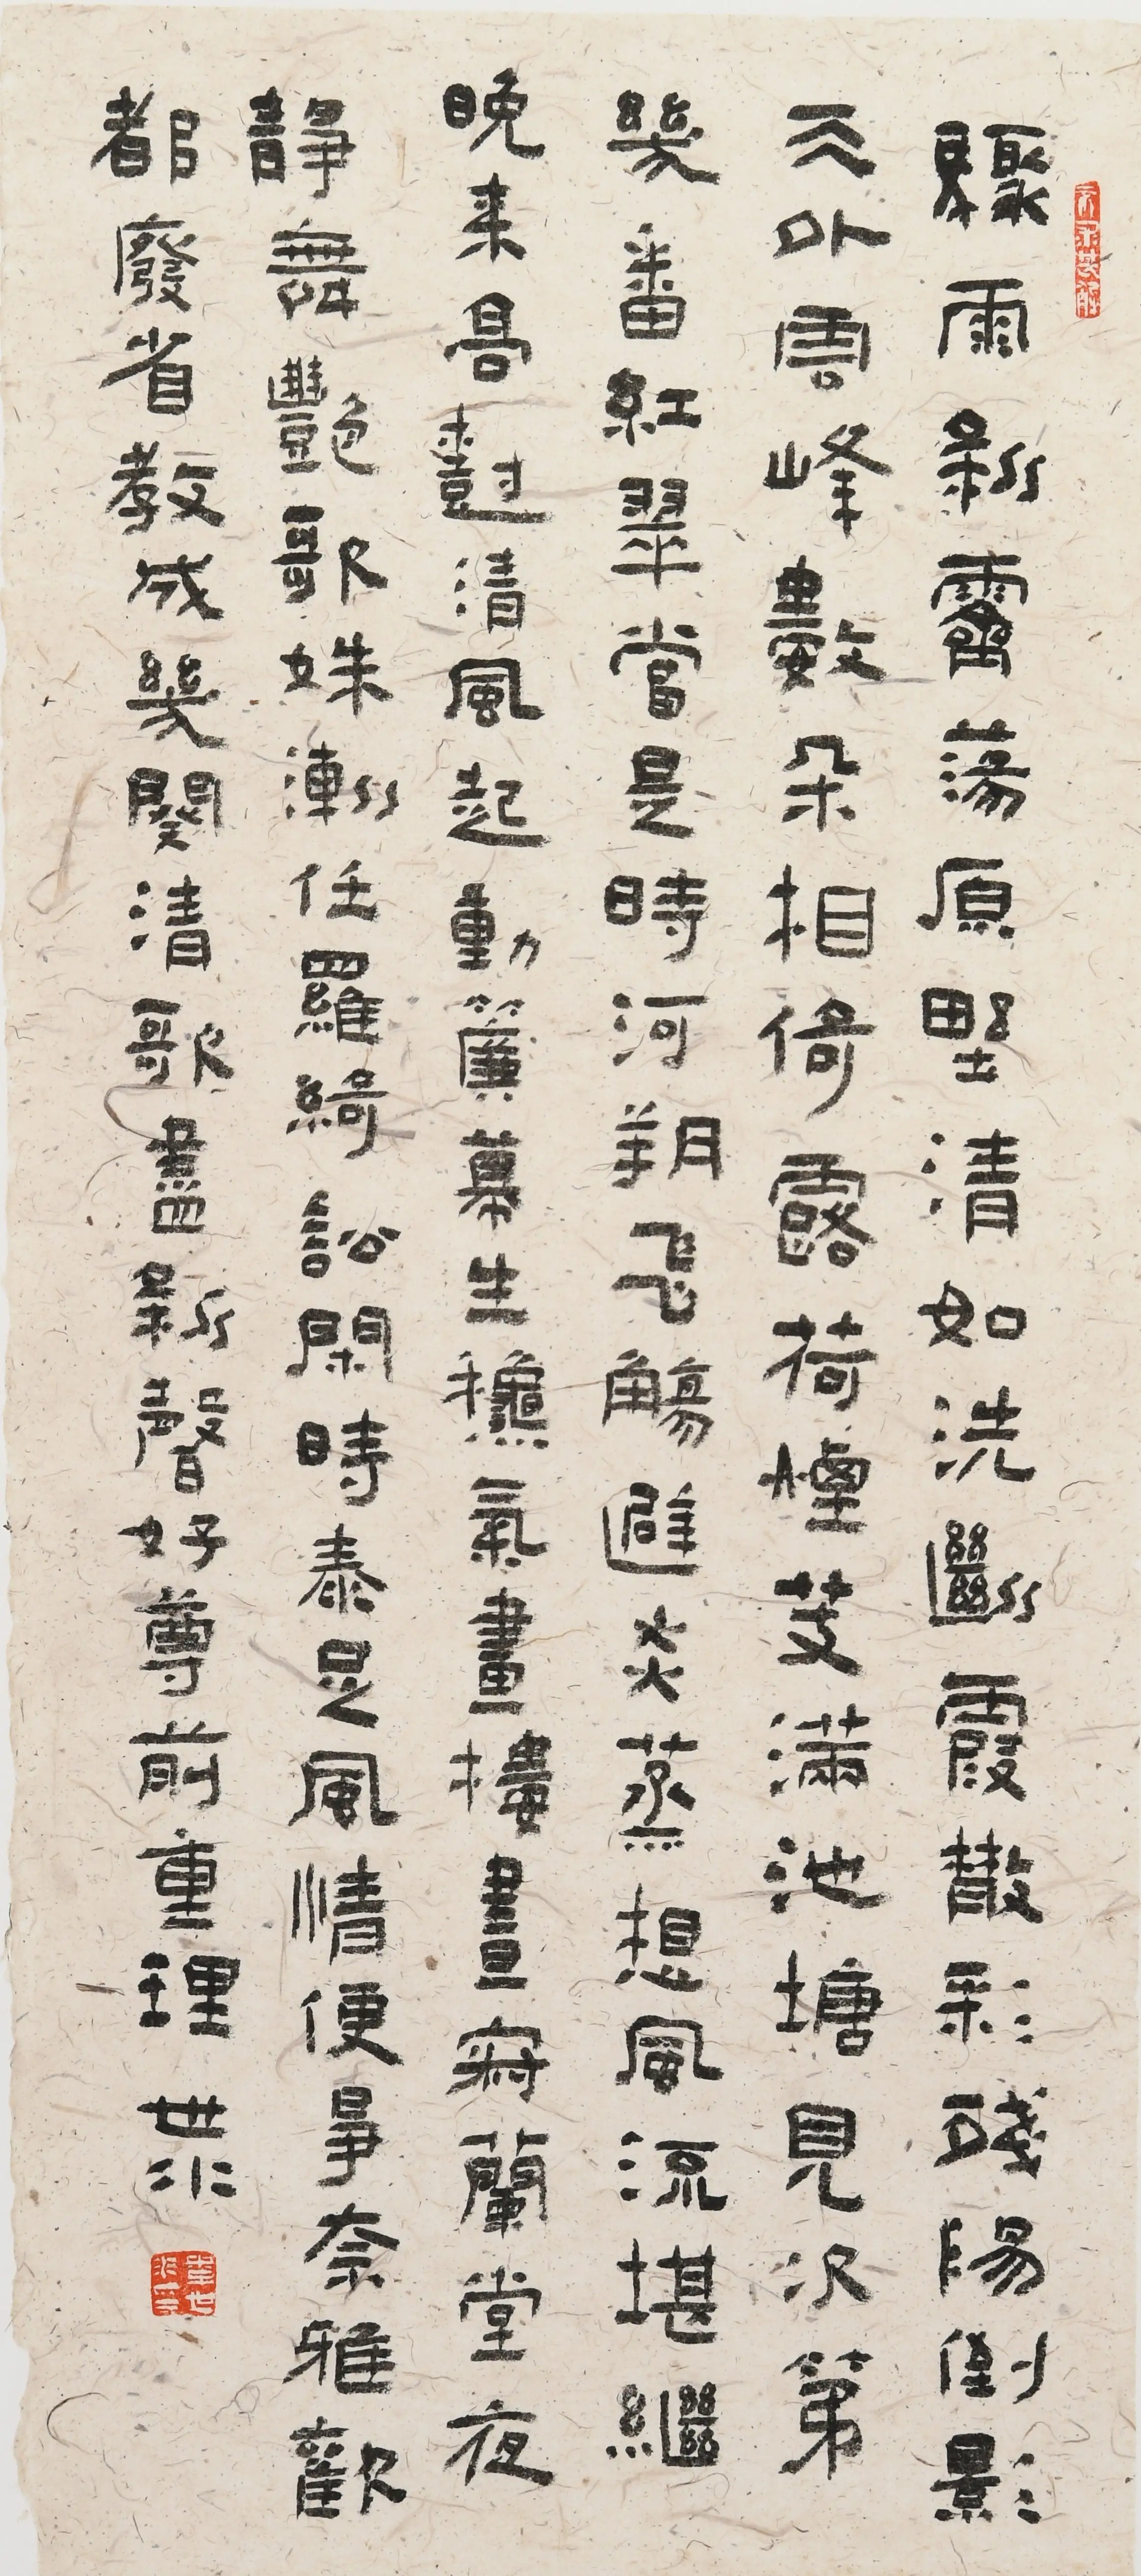 驟雨新霽蕩原野清如洗斷霞散彩殘陽倒影
天外雲峰數朵相倚露荷煙芰滿池塘見次第
幾番紅翠當是時河朔飛觴避炎蒸想風流堪繼
晚來高樹清風起動簾幕生龝氣畫樓晝寂蘭堂夜
靜舞艷歌姝漸任羅綺訟閑時泰足風情便爭奈雅歡
都廢省教成幾闋清歌盡新聲好尊前重理